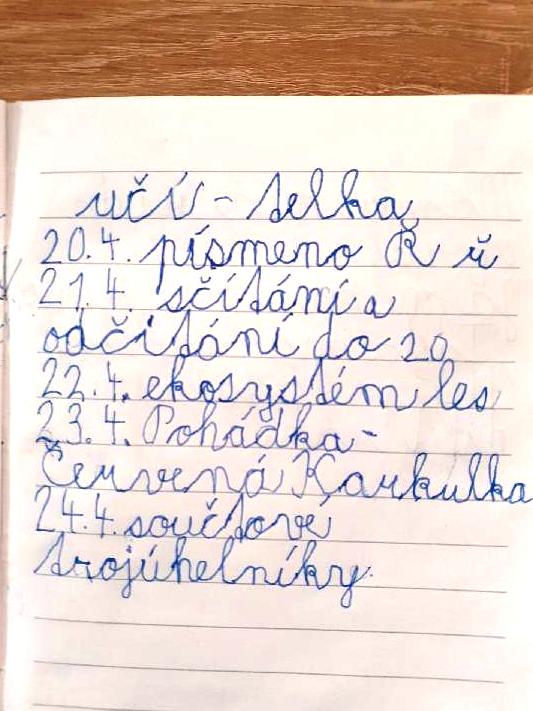 učí - telka
20.4. písmeno Ř ř
21.4. sčítání a
odčítání do 20
22.4. ekosystém les
23.4. Pohádka -
Červená Karkulka
24.4. součtové
trojúhelníky.